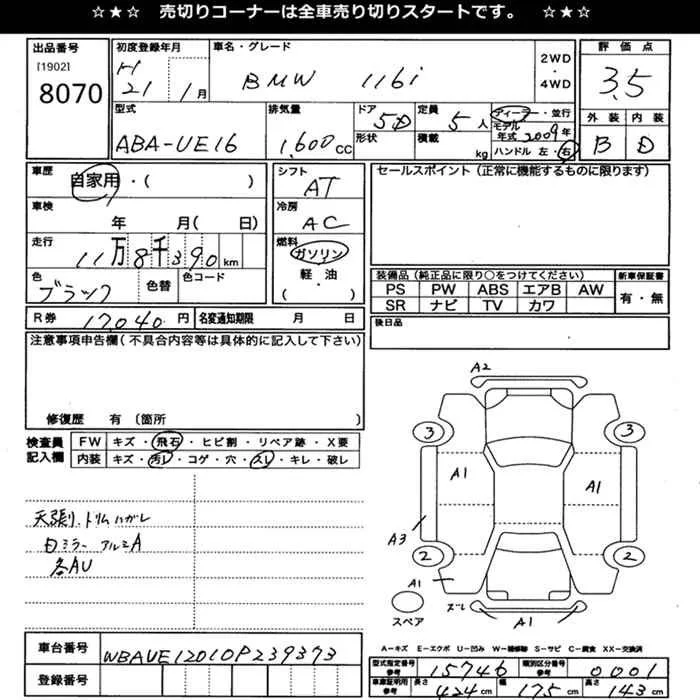 ☆★☆ 売切りコーナーは全車売り切りスタートです。 ☆★☆
出品番号
[1902]
8070
初度登録年月
H
21 1月
車名・グレード
BMW 116i
2WD
・
4WD
評価点
3.5
外装 内装
B D
型式
ABA-UE16
排気量
1,600cc
ドア
5D
形状
定員
5人
積載
kg
ディーラー・並行
モデル年式 2009年
ハンドル 左・右
車歴
自家用・( )
車検
年 月( 日)
走行
11万8千390km
色
ブラック
色替
色コード
シフト
AT
冷房
AC
燃料
ガソリン
軽・油
( )
セールスポイント(正常に機能するものに限ります)
装備品(純正品に限り○をつけてください)
PS PW ABS エアB AW
SR ナビ TV カワ
新車保証書
有・無
後日品
R券 17,040円
名変通知期限 月 日
注意事項申告欄(不具合内容等は具体的に記入して下さい)
修復歴 有(箇所 )
検査員
記入欄
FW キズ・飛石・ヒビ割・リペア跡・X要
内装 キズ・汚レ・コゲ・穴・スレ・キレ・破レ
天張り、トリムハガレ
白ミラー アルミA
各AU
A2
3 3
A1 A1
A3
2 2
A1
ズレ
A1
スペア
A-キズ E-エクボ U-凹み W-補修跡 S-サビ C-腐食 XX-交換済
車台番号
WBAUE12010P239373
登録番号
型式指定番号
参考
15746
類別区分番号
参考
0001
車庫証明用
参考
長さ 424cm
幅 175cm
高さ 143cm